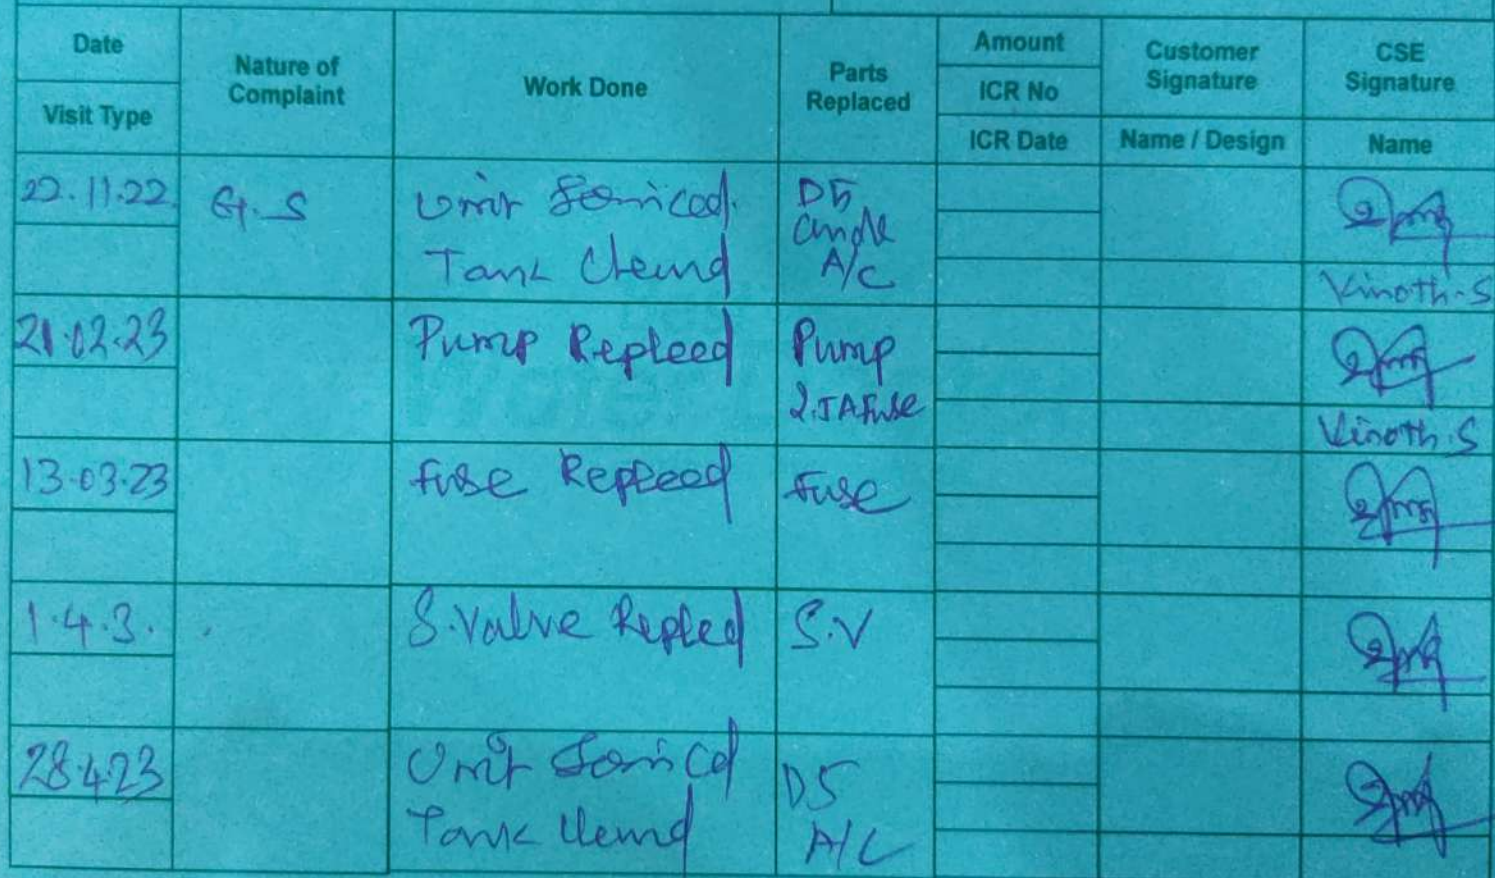 Date
Visit Type
Nature of
Complaint
Work Done
Parts
Replaced
Amount
ICR No
ICR Date
Customer
Signature
Name / Design
CSE
Signature
Name
22.11.22
G.S
Unit Serviced.
Tank Cleand
D5
Candle
A/C
Vinoth.S
21.02.23
Pump Repleed
Pump
2.5A Fuse
Vinoth.S
13.03.23
Fuse Repleed
Fuse
1.4.3.
S.Valve Repled
S.V
28.4.23
Unit Serviced
Tank Cleand
D5
A/C